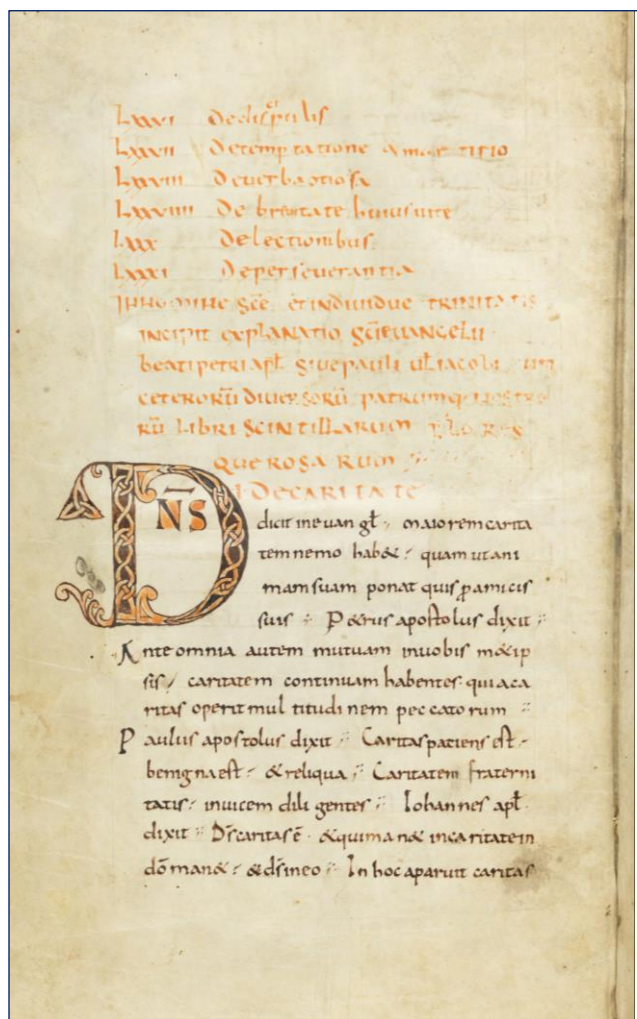 Lxxvi De discipulis
Lxxvii De temptatione & martirio
Lxxviii De verba otiosa
Lxxviiii De brevitate huius vite
Lxxx De lectionibus
Lxxxi De perseverantia
IN NOMINE sc̄e et individue TRINITATIS
INCIPIT explANATIO sc̄i EVANGELII
beati petri apl̄ sive pauli ul̄ iacobi
ceterorū diversorū patrum
rū LIBRI SCINTILLARUM
que ROSARUM
I DE CARITATE
DN̄S dicit in evangl̄ maiorem carita
tem nemo hab& quam ut ani
mam suam ponat quis p̱ amicis
suis P&rus apostolus dixit
Ante omnia autem mutuam in vobis m&ip
sis caritatem continuam habentes quia ca
ritas operit multitudinem peccatorum
Paulus apostolus dixit Caritas patiens est
benigna est & reliqua Caritatem fraterni
tatis invicem diligentes Iohannes apl̄
dixit Ds̄ caritas ē & qui man& in caritate in
dō man& & ds̄ in eo In hoc aparuit caritas